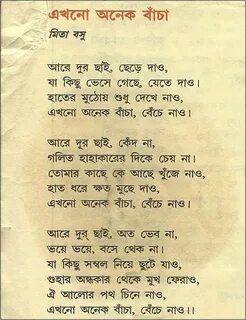 এখনো অনেক বাঁচা
মিতা বসু
আরে দুর ছাই, ছেড়ে দাও,
যা কিছু ভেসে গেছে, যেতে দাও।
হাতের মুঠোয় শুধু দেখে নাও,
এখনো অনেক বাঁচা, বেঁচে নাও।
আরে দুর ছাই, কেঁদ না,
গলিত হাহাকারের দিকে চেয় না।
তোমার কাছে কে আছে খুঁজে নাও,
হাত ধরে ক্ষত মুছে দাও,
এখনো অনেক বাঁচা, বেঁচে নাও।
আরে দুর ছাই, অত ভেব না,
ভয়ে ভয়ে, বসে থেক না।
যা কিছু সম্বল নিয়ে ছুটে যাও,
গুহার অন্ধকার থেকে মুখ ফেরাও,
ঐ আলোর পথ চিনে নাও,
এখনো অনেক বাঁচা, বেঁচে নাও।।